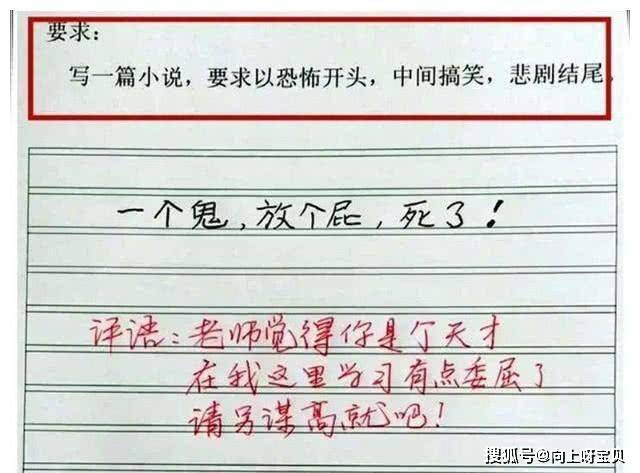 要求:
写一篇小说，要求以恐怖开头，中间搞笑，悲剧结尾。
一个鬼，放个屁，死了！
评语：老师觉得你是个天才
在我这里学习有点委屈了
请另谋高就吧！
搜狐号@向上呀宝贝